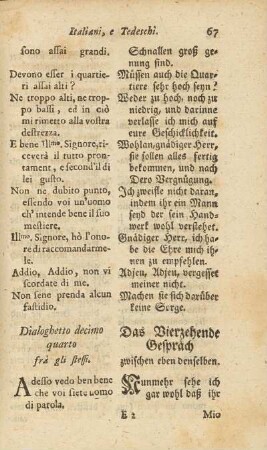 Italiani, e Tedeschi. 67
sono assai grandi.
Devono esser i quartie-
ri assai alti?
Ne troppo alti, ne trop-
po bassi, ed in ciò
mi rimetto alla vostra
destrezza.
E bene Illmo, Signore, ri-
ceverà il tutto pron-
tament, e second'il di
lei gusto.
Non ne dubito punto,
essendo voi un'uomo
ch' intende bene il suo
mestiere.
Illmo, Signore, hò l'ono-
re di raccomandarme-
le.
Addio, Addio, non vi
scordate di me.
Non sene prenda alcun
fastidio.
Dialoghetto decimo
quarto
frà gli stessi.
Adesso vedo ben bene
che voi siete uomo
di parola,
Schnallen groß ge-
nung sind.
Müssen auch die Quar-
tiere sehr hoch seyn?
Weder zu hoch, noch zu
niedrig, und darinne
verlasse ich mich auf
eure Geschicklichkeit.
Wohlan, gnädiger Herr,
sie sollen alles fertig
bekommen, und nach
Dero Vergnügung.
Ich zweifle nicht daran,
indem ihr ein Mann
send der sein Hand-
werk wohl verstehet.
Gnädiger Herr, ich ha-
be die Ehre mich ih-
nen zu empfehlen.
Adjeu, Adjeu, vergesset
meiner nicht.
Machen sie sich darüber
keine Sorge.
Das Vierzehende
Gespräch
zwischen eben denselben.
Nunmehr sehe ich
gar wohl daß ihr
E 2 Mio